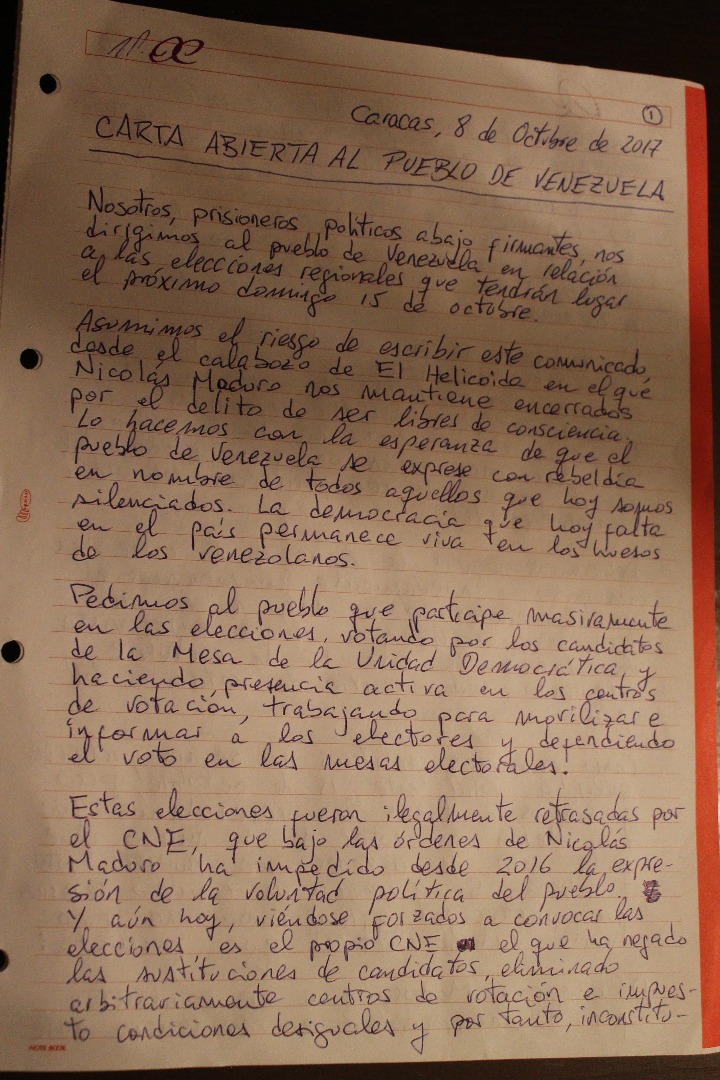 1
Caracas, 8 de Octubre de 2017
CARTA ABIERTA AL PUEBLO DE VENEZUELA
Nosotros, prisioneros políticos abajo firmantes, nos
dirigimos al pueblo de Venezuela en relación
a las elecciones regionales que tendrán lugar
el próximo domingo 15 de octubre.
Asumimos el riesgo de escribir este comunicado
desde el calabozo de El Helicoide en el que
Nicolás Maduro nos mantiene encerrados
por el delito de ser libres de consciencia.
Lo hacemos con la esperanza de que el
pueblo de Venezuela se exprese con rebeldía
en nombre de todos aquellos que hoy somos
silenciados. La democracia que hoy falta
en el país permanece viva en los huesos
de los venezolanos.
Pedimos al pueblo que participe masivamente
en las elecciones, votando por los candidatos
de la Mesa de la Unidad Democrática, y
haciendo presencia activa en los centros
de votación, trabajando para movilizar e
informar a los electores y defendiendo
el voto en las mesas electorales.
Estas elecciones fueron ilegalmente retrasadas por
el CNE, que bajo las órdenes de Nicolás
Maduro ha impedido desde 2016 la expre-
sión de la voluntad política del pueblo.
Y aún hoy, viéndose forzados a convocar las
elecciones es el propio CNE el que ha negado
las sustituciones de candidatos, eliminado
arbitrariamente centros de votación e impues-
to condiciones desiguales y por tanto, inconstitu-